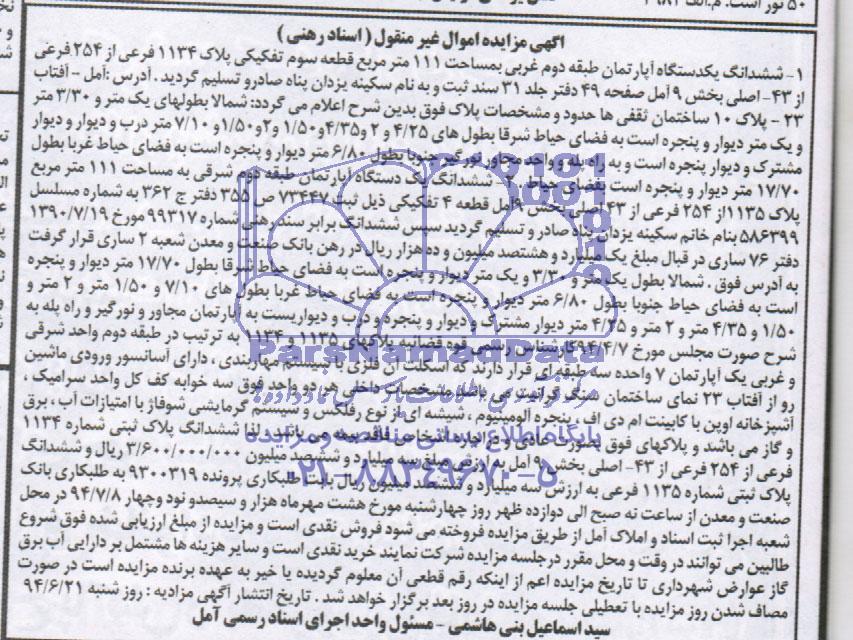 ۵۰ نور است. م.الف ۱۹۸۱
آگهی مزایده اموال غیر منقول ( اسناد رهنی )
۱- ششدانگ یکدستگاه آپارتمان طبقه دوم غربی بمساحت ۱۱۱ متر مربع قطعه سوم تفکیکی پلاک ۱۱۳۴ فرعی از ۲۵۴ فرعی
از ۴۳- اصلی بخش ۹ آمل صفحه ۴۹ دفتر جلد ۳۱ سند ثبت و به نام سکینه یزدان پناه صادرو تسلیم گردید . آدرس :آمل - آفتاب
۲۳ - پلاک ۱۰ ساختمان ثقفی ها حدود و مشخصات پلاک فوق بدین شرح اعلام می گردد: شمالا بطولهای یک متر و ۳/۳۰ متر
و یک متر دیوار و پنجره است به فضای حیاط شرقا بطول های ۴/۲۵ و ۲ و۴/۳۵و ۱/۵۰ و۲و۱/۵۰و ۷/۱۰ متر درب و دیوار و دیوار
مشترک و دیوار پنجره است و به راه پله و واحد مجاور نورگیر جنوبا بطول ۶/۸۰ متر دیوار و پنجره است به فضای حیاط غربا بطول
۱۷/۷۰ متر دیوار و پنجره است بفضای حیاط ششدانگ یک دستگاه آپارتمان طبقه دوم شرقی به مساحت ۱۱۱ متر مربع
پلاک ۱۱۳۵از ۲۵۴ فرعی از ۴۳ اصلی بخش ۹ آمل قطعه ۴ تفکیکی ذیل ثبت ۷۳۴۴۷ ص ۳۵۵ دفتر ج ۳۶۲ به شماره مسلسل
۵۸۶۳۹۹ بنام خانم سکینه یزدان پناه صادر و تسلیم گردید سپس ششدانگ برابر سند رهنی شماره ۹۹۳۱۷ مورخ ۱۳۹۰/۷/۱۹
دفتر ۷۶ ساری در قبال مبلغ یک میلیارد و هشتصد میلیون و ده هزار ریال در رهن بانک صنعت و معدن شعبه ۲ ساری قرار گرفت
به آدرس فوق . شمالا بطول یک متر و ۳/۳۰ و یک متر دیوار و پنجره است به فضای حیاط شرقا بطول ۱۷/۷۰ متر دیوار و پنجره
است به فضای حیاط جنوبا بطول ۶/۸۰ متر دیوار و پنجره است به فضای حیاط غربا بطول های ۷/۱۰ و ۱/۵۰ متر و ۲ متر و
۱/۵۰ و ۴/۳۵ متر و ۲ متر و ۴/۲۵ متر دیوار مشترک و دیوار و پنجره و درب و دیواریست به آپارتمان مجاور و نورگیر و راه پله به
شرح صورت مجلس مورخ ۹۴/۴/۷کارشناس رسمی قوه قضائیه پلاکهای ۱۱۳۵ و ۱۱۳۴ به ترتیب در طبقه دوم واحد شرقی
و غربی یک آپارتمان ۷ واحده سه طبقه ای قرار دارند که اسکلت آن فلزی با سیستم مهاربندی ، دارای آسانسور ورودی ماشین
رو از آفتاب ۲۳ نمای ساختمان سنگ گرانیت می باشد مشخصات داخلی هر دو واحد فوق سه خوابه کف کل واحد سرامیک ،
آشپزخانه اوپن با کابینت ام دی اف ، پنجره آلومینیوم ، شیشه ای از نوع رفلکس و سیستم گرمایشی شوفاژ با امتیازات آب ، برق
و گاز می باشد و پلاکهای فوق بصورت عادی و در اجاره اشخاص فاقد بیمه می باشد. لذا ششدانگ پلاک ثبتی شماره ۱۱۳۴
فرعی از ۲۵۴ فرعی از ۴۳- اصلی بخش ۹ آمل به ارزش مبلغ سه میلیارد و ششصد میلیون ۳/۶۰۰/۰۰۰/۰۰۰ ریال و ششدانگ
پلاک ثبتی شماره ۱۱۳۵ فرعی به ارزش سه میلیارد و ششصد میلیون ریال بابت طلبکاری پرونده ۹۳۰۰۳۱۹ به طلبکاری بانک
صنعت و معدن از ساعت نه صبح الی دوازده ظهر روز چهارشنبه مورخ هشت مهرماه هزار و سیصدو نود وچهار ۹۴/۷/۸ در محل
شعبه اجرا ثبت اسناد و املاک آمل از طریق مزایده فروخته می شود فروش نقدی است و مزایده از مبلغ ارزیابی شده فوق شروع
طالبین می توانند در وقت و محل مقرر درجلسه مزایده شرکت نمایند خرید نقدی است و سایر هزینه ها مشتمل بر دارایی آب برق
گاز عوارض شهرداری تا تاریخ مزایده اعم از اینکه رقم قطعی آن معلوم گردیده یا خیر به عهده برنده مزایده است در صورت
مصاف شدن روز مزایده با تعطیلی جلسه مزایده در روز بعد برگزار خواهد شد . تاریخ انتشار آگهی مزادیه : روز شنبه ۹۴/۶/۲۱
سید اسماعیل بنی هاشمی - مسئول واحد اجرای اسناد رسمی آمل
ParsNamadData
پایگاه اطلاع رسانی مناقصه و مزایده
۰۲۱-۸۸۳۴۹۶۷۰-۵